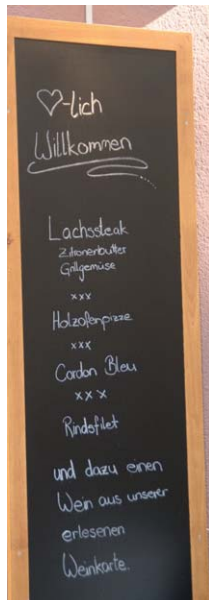 ♡-lich
Willkommen
Lachssteak
Zitronenbutter
Grillgemüse
xxx
Holzofenpizze
xxx
Cordon Bleu
xxx
Rindsfilet
und dazu einen
Wein aus unserer
erlesenen
Weinkarte.